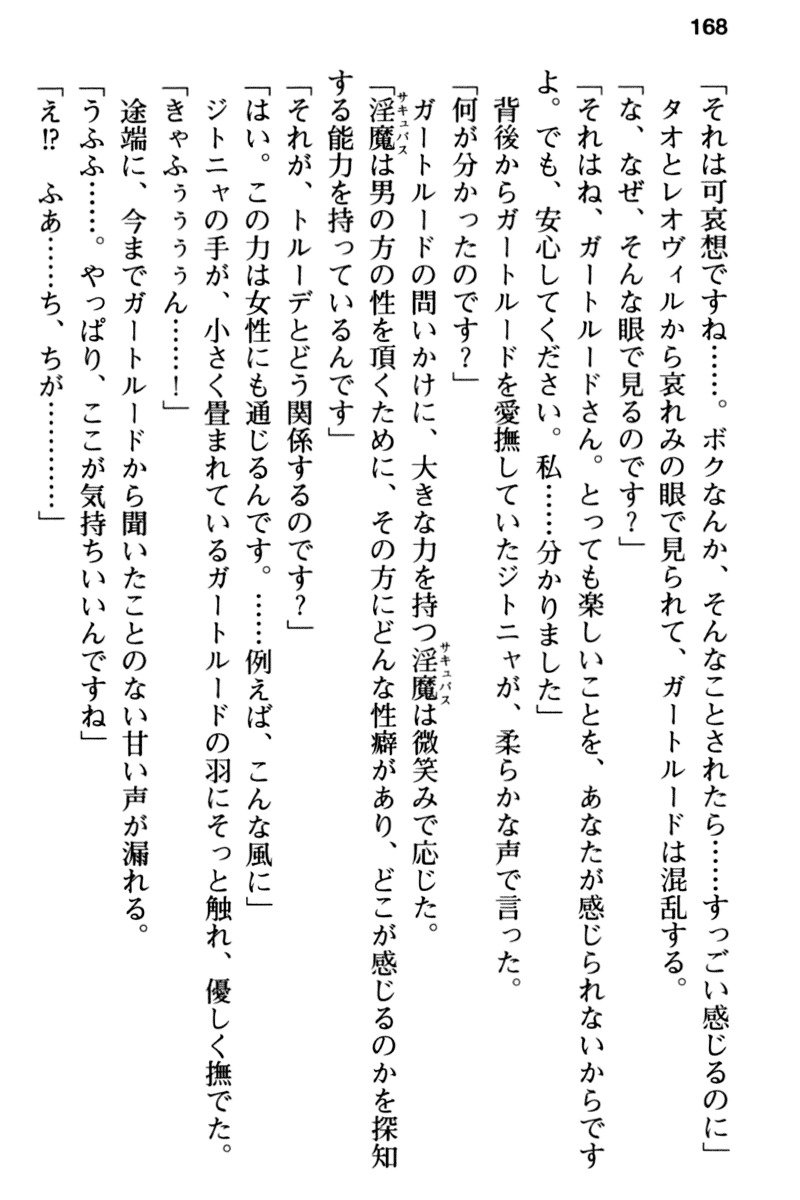 168
「それは可哀想ですね……。ボクなんか、そんなことされたら……すっごい感じるのに」
タオとレオヴィルから哀れみの眼で見られて、ガートルードは混乱する。
「な、なぜ、そんな眼で見るのです？」
「それはね、ガートルードさん。とっても楽しいことを、あなたが感じられないからです
よ。でも、安心してください。私……分かりました」
背後からガートルードを愛撫していたジトニャが、柔らかな声で言った。
「何が分かったのです？」
ガートルードの問いかけに、大きな力を持つ淫魔サキュバスは微笑みで応じた。
「淫魔サキュバスは男の方の性を頂くために、その方にどんな性癖があり、どこが感じるのかを探知
する能力を持っているんです」
「それが、トルーデとどう関係するのです？」
「はい。この力は女性にも通じるんです。……例えば、こんな風に」
ジトニャの手が、小さく畳まれているガートルードの羽にそっと触れ、優しく撫でた。
「きゃふぅぅぅぅん……！」
途端に、今までガートルードから聞いたことのない甘い声が漏れる。
「うふふ……。やっぱり、ここが気持ちいいんですね」
「え!?　ふあ……ち、ちが…………」